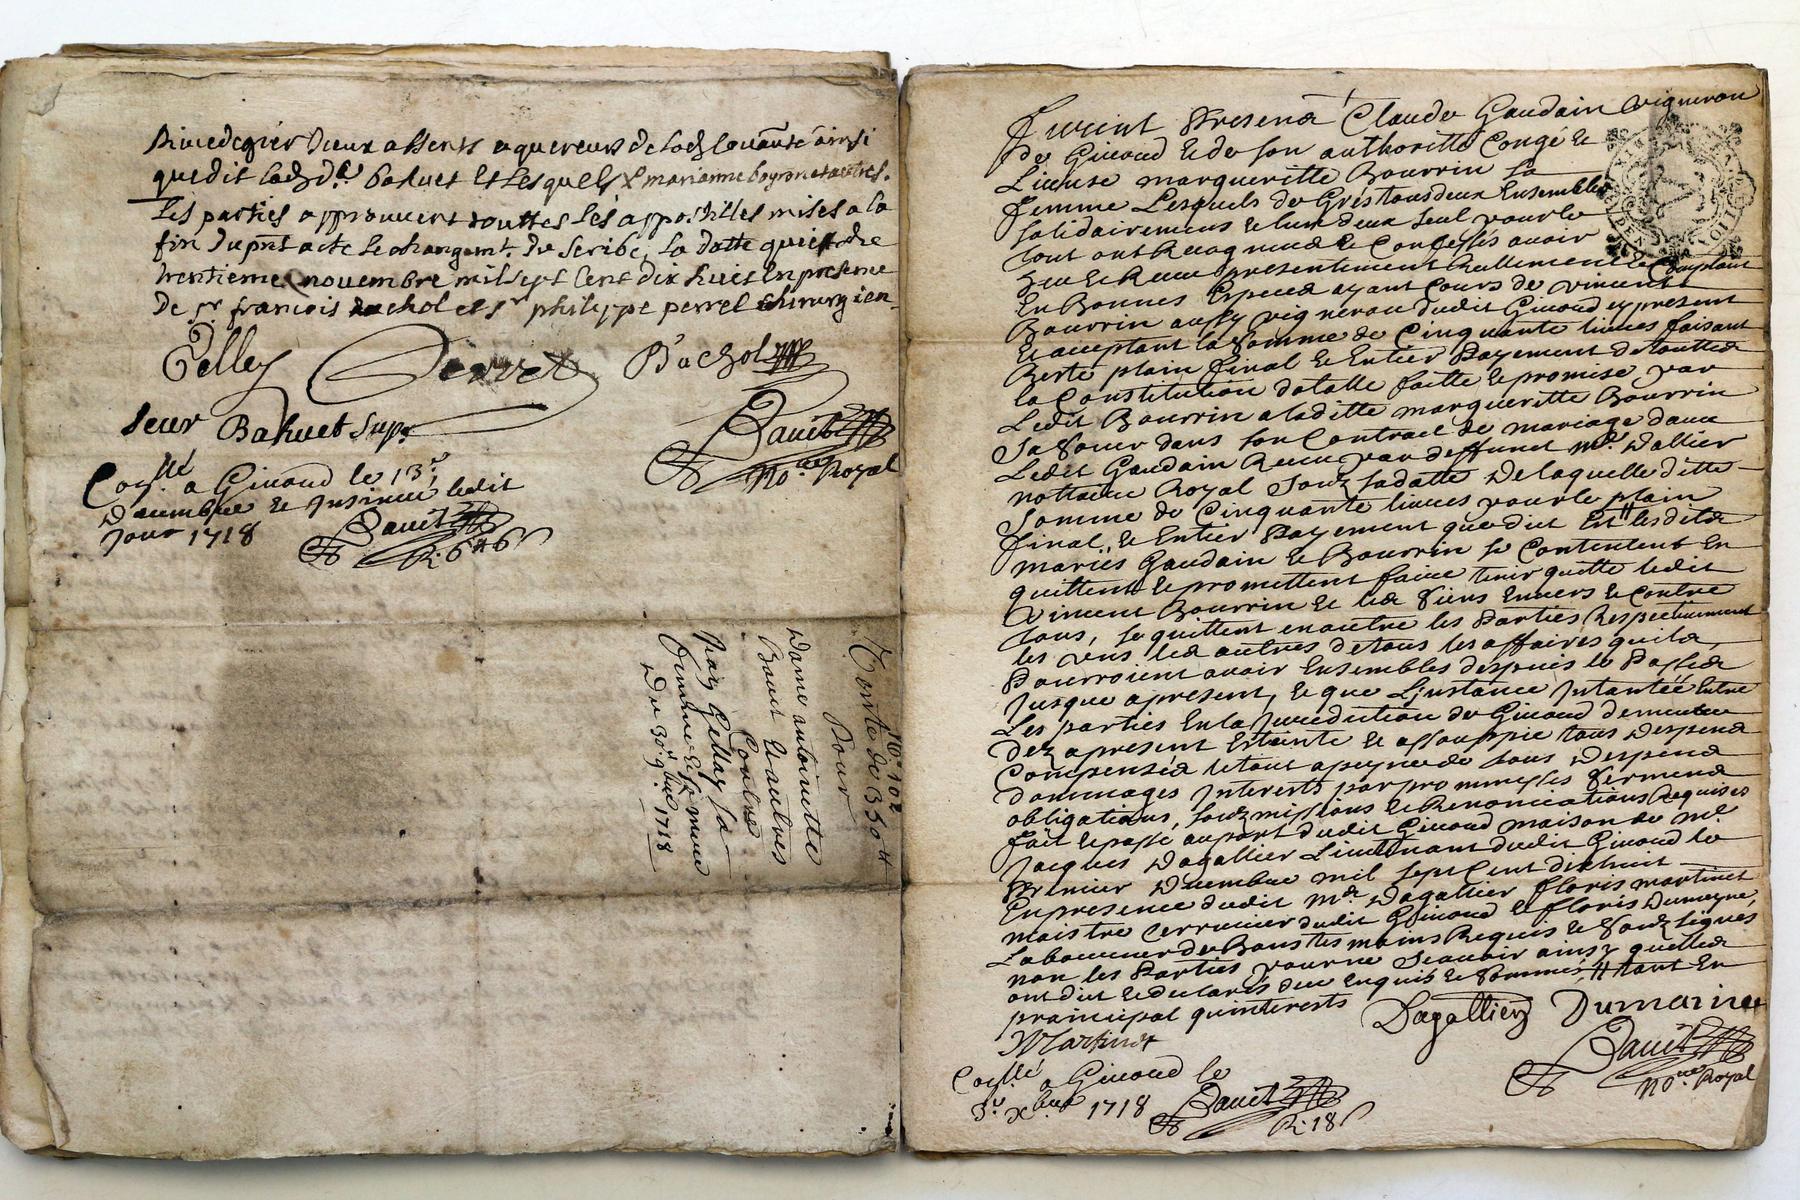 quedit lad. de. Bahuet Et Lesquels & marianne boyron et autres.
Les parties approuvent touttes Les appostilles mises a la
fin du pnt acte Le changemt. de scribe, La datte
trentieme novembre mil sept Cent dix huit En presence
De sr. francois Bachol et sr philippe perrel chirurgien
Gelley
Bachol
seur Bahuet supr
Bauët
No.re Royal
Con.llé a Giuord le 13e
Decembre et Insinué ledit
Jour 1718
Bauët
R: 6 # 6 s
No. 102
Vente de 350 #
Pour
Dame antoinette
Bauet Et autres
Contre
Gellay sa
femme
Du 30e 9bre 1718
Furent Presens Claude Gaudain vigneron
De Giuord & de son authoritté Congé &
License margueritte Bourrin sa
femme Lesquels de Gré tous deux Ensembles
solidairement & lun deux seul pour le
tout ont Recognus & Confessés avoir
heu & Receu presentement Reellement & Comptant
En Bonnes Especes ayant Cours de vincent
Bourrin aussy vigneron dudit Giuord cy present
& acceptant la somme de Cinquante liures faisant
Reste plain final & Entier Payement de touttes
la Constitution dotalle faitte & promise par
Ledit Bourrin a laditte margueritte Bourrin
sa soeur dans son Contract de mariage dauec
Ledit Gaudain Receu par deffunct Me. Dallier
nottaire Royal soubz sa datte De laquelle ditte
somme de Cinquante liures pour le plain
final & Entier Payement que dict Est # lesdits
mariés Gaudain & Bourrin se Contentent En
quittent & promettent faire tenir quitte ledit
Vincent Bourrin & les siens Enuers & Contre
tous, se quittent en outre les Parties Respectiuement
les vns les autres de tous les affaires quils
Pourroient avoir Ensembles despuis le Passé
Jusque a present, & que L'Instance Intantéé Entre
Les parties En la Jurediction de Giuord demeure
dez a present Estainte & assouppie tous Despens
Compensés le tout a peyne de tous Despens
dommages Interests par promesses sermens
obligations, soubzmissions & Renonciations Requises
fait & passé au port dudit Giuord maison de Me.
Jacques Dagallier Lieutenant dudit Giuord le
Premier Decembre mil sept Cent dixhuit
En presence dudit Me. Dagallier floris martinet
maistre serrurier dudit Giuord & floris Dumayne
Laboureur de Bans tesmoins Requis & soubzsignés
non les Parties pour ne scauoir ainsy quelles
ont dict & declarés deue Enquis & sommés # tant En
principal quinterests
Dagallier Dumaine
Martinet
Bauët
No.re Royal
Con.llé a Giuord le
3e Xbre 1718
Bauët
R: 18 s